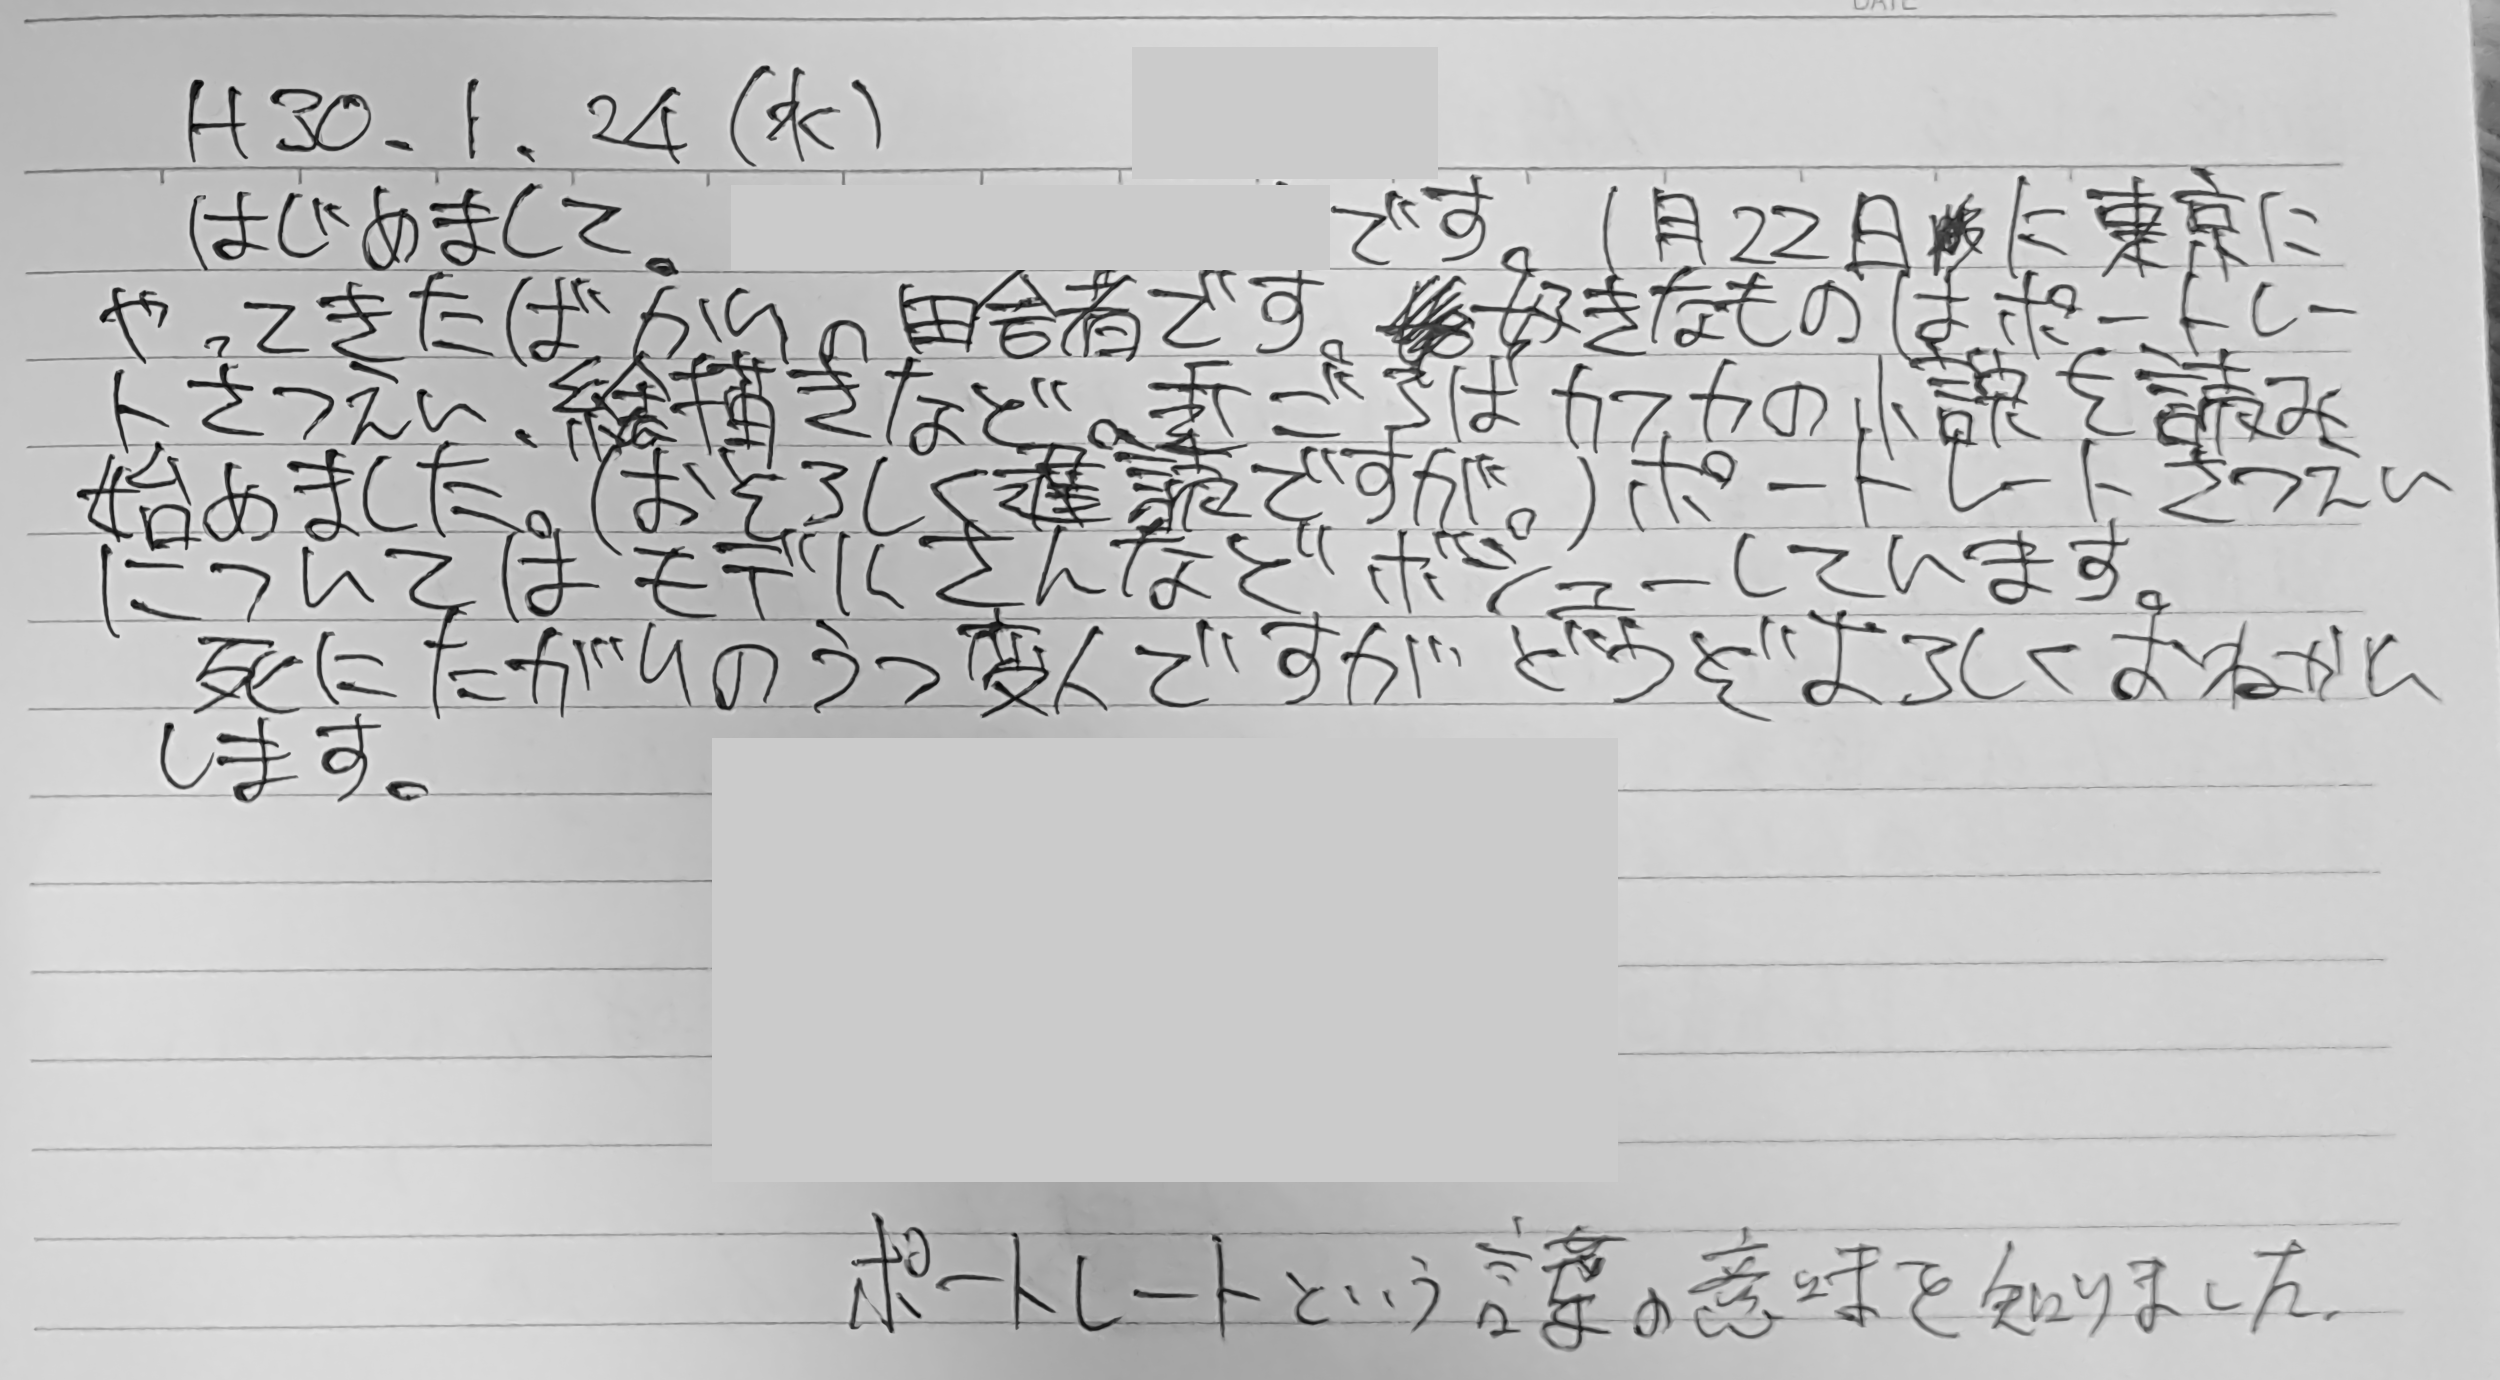 H30.1.24(水)
はじめまして。です。1月22日に東京に
やってきたばかり。田舎者です。好きなものはポートレー
トさつえい、絵描きなど。手ごろはカフカの小説を読み
始めました。(おそろしく遅読ですが。)ポートレートさつえい
についてはモデルさんなどボシューしています。
死にたがりのうつ変人ですがどうぞよろしくおねがい
します。
ポートレートという言葉の意味を知りました.